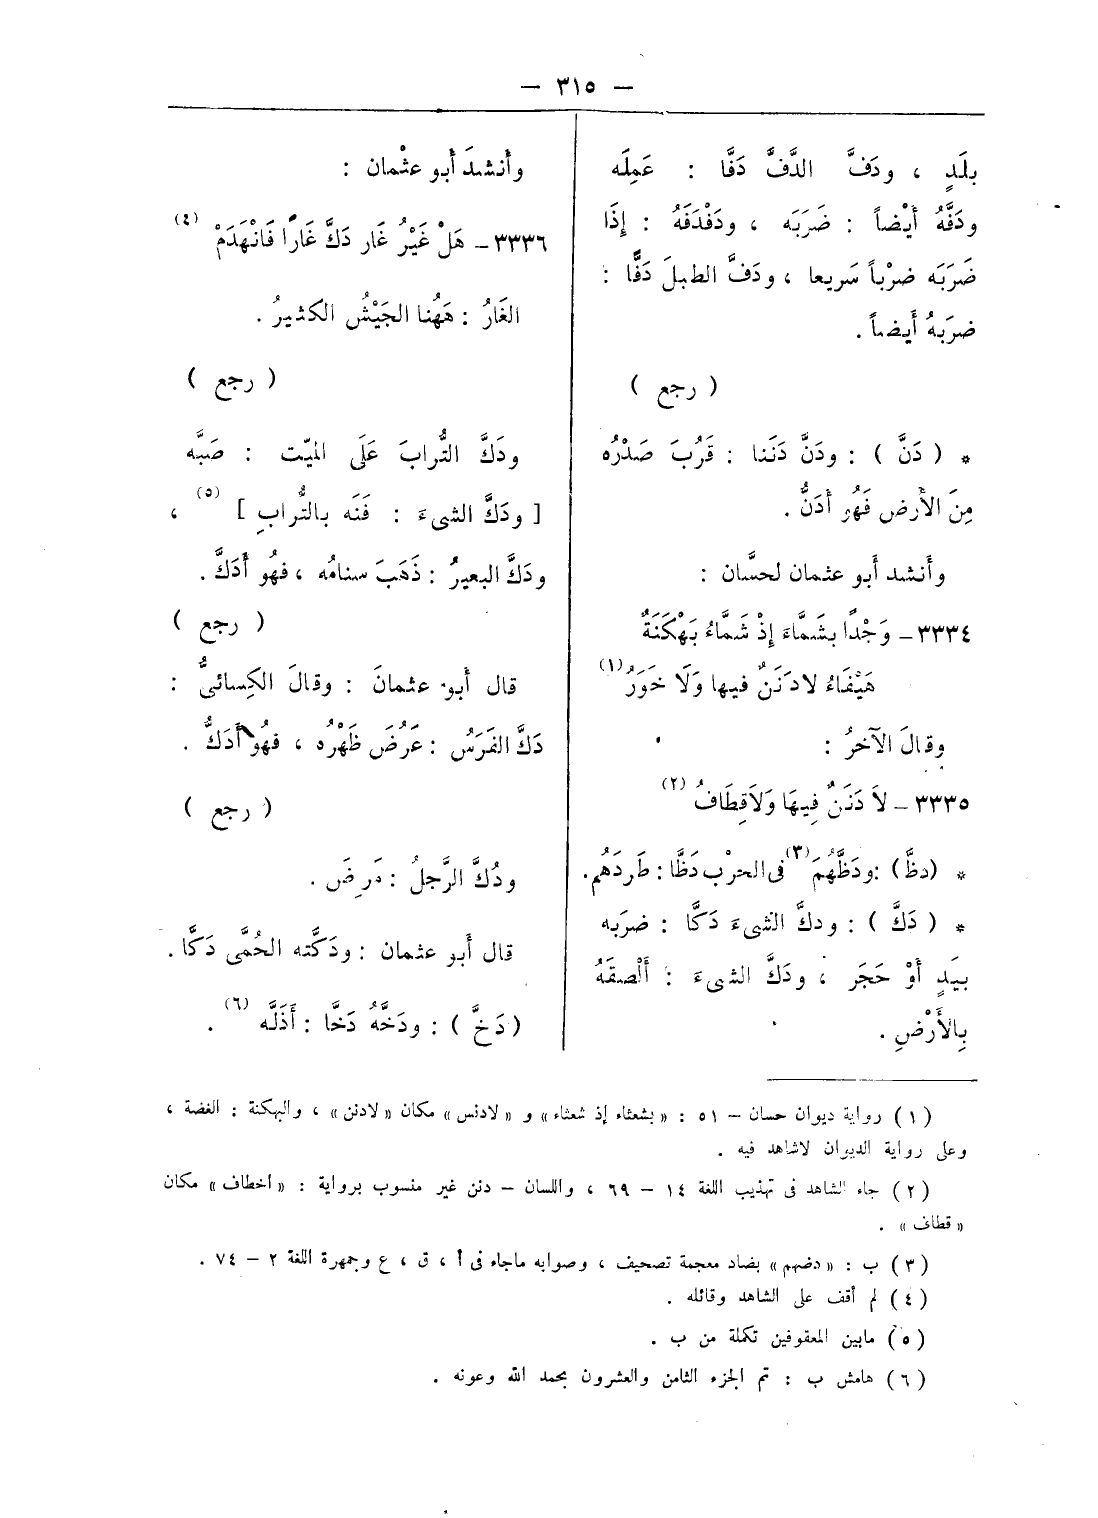 — ٣١٥ —
بلَدٍ ، ودَفَّ الدَّفَّ دَفَّا : عَمِلَه
ودَفَّهُ أيْضاً : ضَرَبَه ، ودَفْدَفَهُ : إذَا
ضَرَبَه ضرْباً سَريعا ، ودَفَّ الطبلَ دَفًّا :
ضرَبهُ أَيضاً .
( رجع )
* ( دَنَّ ) : ودَنَّ دَنَنا : قَرُبَ صَدْرُه
مِنَ الأَرض فَهُو أدَنُّ .
وأَنشد أَبو عثمان لحسَّان :
٣٣٣٤ – وَجْدًا بشَمَّاءَ إذْ شَمَّاءُ بَهْكَنَةٌ
هَيْفَاءُ لادَنَنٌ فيها وَلَا خَوَرُ (١)
وقالَ الآخرُ :
٣٣٣٥ – لاَ دَنَنٌ فِيهَا وَلاَقِطَافُ (٢)
* (دظَّ) : ودَظَّهُمَ (٣) فى الحرْب دَظَّا : طَردَهُم.
* ( دَكَّ ) : ودكَّ الشىءَ دَكَّا : ضربَه
بيَدٍ أوْ حَجَر ، ودَكَّ الشىءَ : أَلْصقَهُ
بِالأَرْضِ .
وأَنشدَ أَبو عثْمان :
٣٣٣٦ – هَلْ غَيْرُ غَار دَكَّ غَارًا فَانْهَدَمْ (٤)
الغَارُ : هَهُنا الجَيْشُ الكثيرُ .
( رجع )
ودَكَّ التُّرابَ عَلَى الميّت : صَبَّه
[ ودَكَّ الشىءَ : فَنَه بالتُّرابِ ] (٥) ،
ودَكَّ البعيرُ : ذَهَبَ سنامُه ، فهُو أَدَكُّ .
( رجع )
قال أَبو عثمانَ : وقالَ الكِسائىُّ :
دَكَّ الفَرَسُ : عَرُضَ ظَهْرُه ، فهُو أَدَكُّ .
( رجع )
ودُكَّ الرَّجلُ : مَرِضَ .
قال أَبو عثمان : ودَكَّته الحُمَّى دَكَّا .
( دَخَّ ) : ودَخَّهُ دَخَّا : أَذَلَّه (٦) .
(١) رواية ديوان حسان – ٥١ : «بشعثاء إذ شعثاء» و «لادنس» مكان «لادنن» ، والبهكنة : الغضة ،
وعلى رواية الديوان لاشاهد فيه .
(٢) جاء الشاهد فى تهذيب اللغة ١٤ – ٦٩ ، واللسان – دنن غير منسوب برواية : «أخطاف» مكان
«قطاف» .
(٣) ب : «دضهم» بضاد معجمة تصحيف ، وصوابه ماجاء فى أ ، ق ، ع وجمهرة اللغة ٢ – ٧٤ .
(٤) لم أقف على الشاهد وقائله .
(٥) مابين المعقوفين تكملة من ب .
(٦) هامش ب : تم الجزء الثامن والعشرون بحمد الله وعونه .